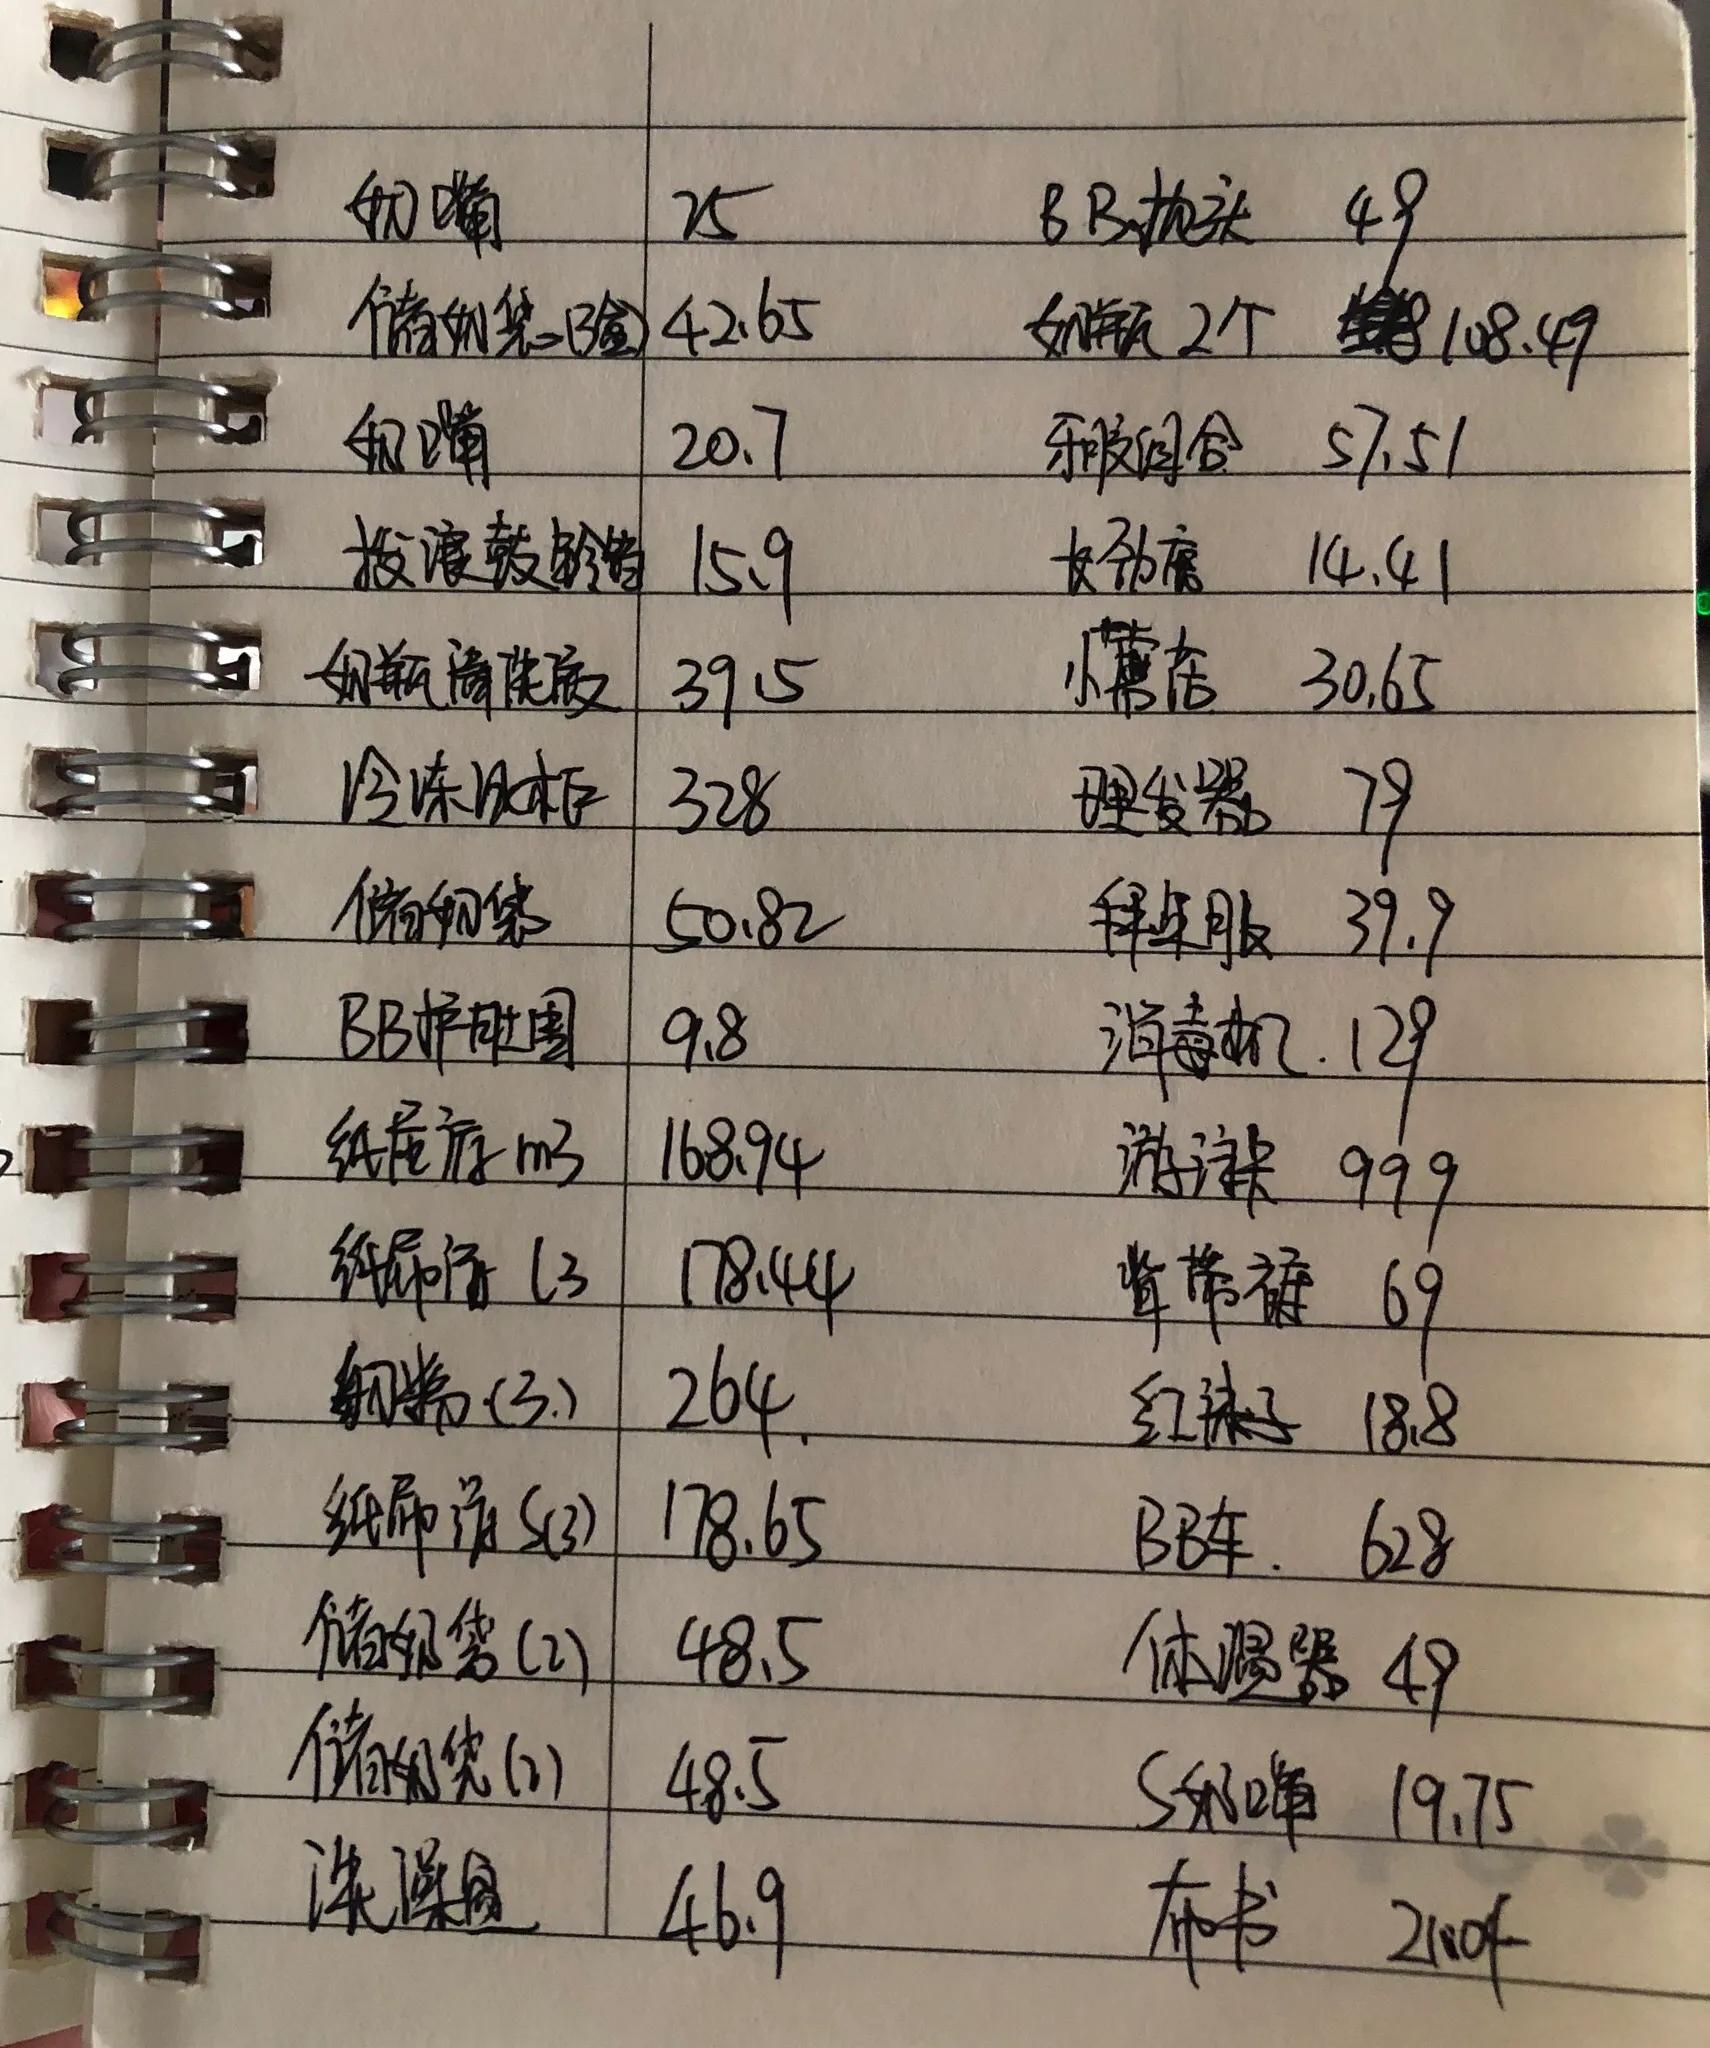 奶嘴 25 BB枕头 49
储奶袋(3盒) 42.65 奶瓶2个 108.49
奶嘴 20.7 牙胶组合 57.51
拨浪鼓铃铛 15.9 14.41
奶瓶清洗液 39.5 小 30.65
冷冻冰柜 328 理发器 79
储奶袋 50.82 拜年服 39.9
BB护肚围 9.8 消毒机. 129
纸尿裤 m3 168.94 游泳卡 999
纸尿裤 L3 178.44 背带裤 69
奶粉(3.) 264. 红裤子 18.8
纸尿裤 S(3) 178.65 BB车. 628
储奶袋(2) 48.5 体温器 49
储奶袋(2) 48.5 S奶嘴 19.75
洗澡盆 46.9 布书 21.04